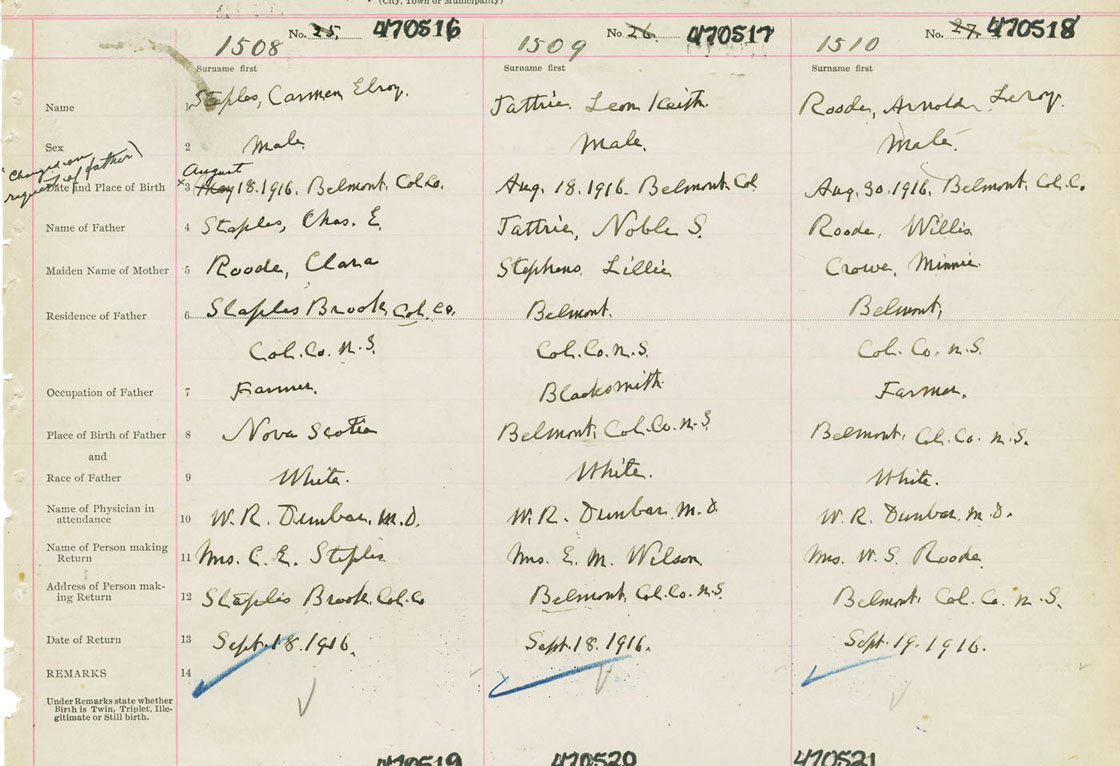 (City, Town or Municipality)
No. 25. 470516 No. 26. 470517 No. 27. 470518
1508 1509 1510
Surname first Surname first Surname first
Name 1 Staples, Carmen Elroy. Tattrie, Leon Keith. Roode, Arnold Leroy.
Sex 2 Male. Male. Male.
(Changed on request of father)
August
Date and Place of Birth x3 May 18.1916. Belmont. Col.Co. Aug. 18.1916. Belmont Col. Aug. 30.1916. Belmont, Col.C.
Name of Father 4 Staples, Chas. E. Tattrie, Noble S. Roode, Willis
Maiden Name of Mother 5 Roode, Clara Stephens, Lillie Crowe, Minnie.
Residence of Father 6 Staples Brook, Col. Co. Belmont. Belmont,
Col. Co. N.S. Col. Co. N.S. Col. Co. N.S.
Occupation of Father 7 Farmer. Blacksmith Farmer.
Place of Birth of Father 8 Nova Scotia Belmont, Col.Co. N.S. Belmont, Col. Co. N.S.
and
Race of Father 9 White. White. White.
Name of Physician in attendance 10 W. R. Dunbar, M.D. W. R. Dunbar, M.D. W. R. Dunbar M.D.
Name of Person making Return 11 Mrs. C. E. Staples Mrs. E. M. Wilson Mrs. W. S. Roode.
Address of Person making Return 12 Staples Brook, Col. Co Belmont, Col.Co. N.S. Belmont, Col. Co. N.S.
Date of Return 13 Sept. 18. 1916. Sept. 18. 1916. Sept. 19. 1916.
REMARKS 14
Under Remarks state whether
Birth is Twin, Triplet, Ille-
gitimate or Still birth.
470519 470520 470521